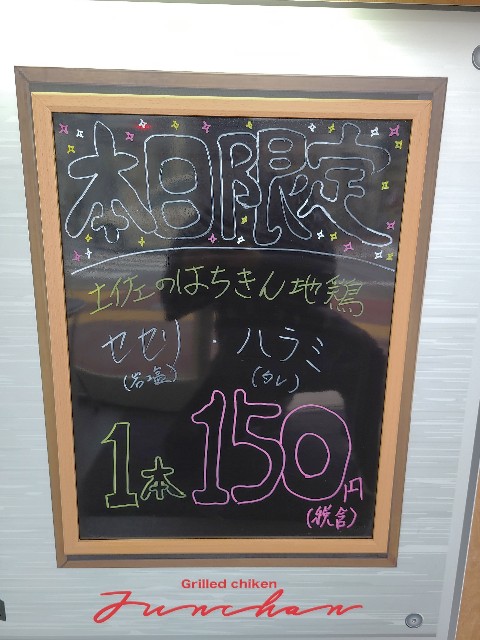 本日限定
土佐のはちきん地鶏
セセリ・ハラミ
(岩塩) (タレ)
1本150円
(税含)
Grilled chiken
Junchan